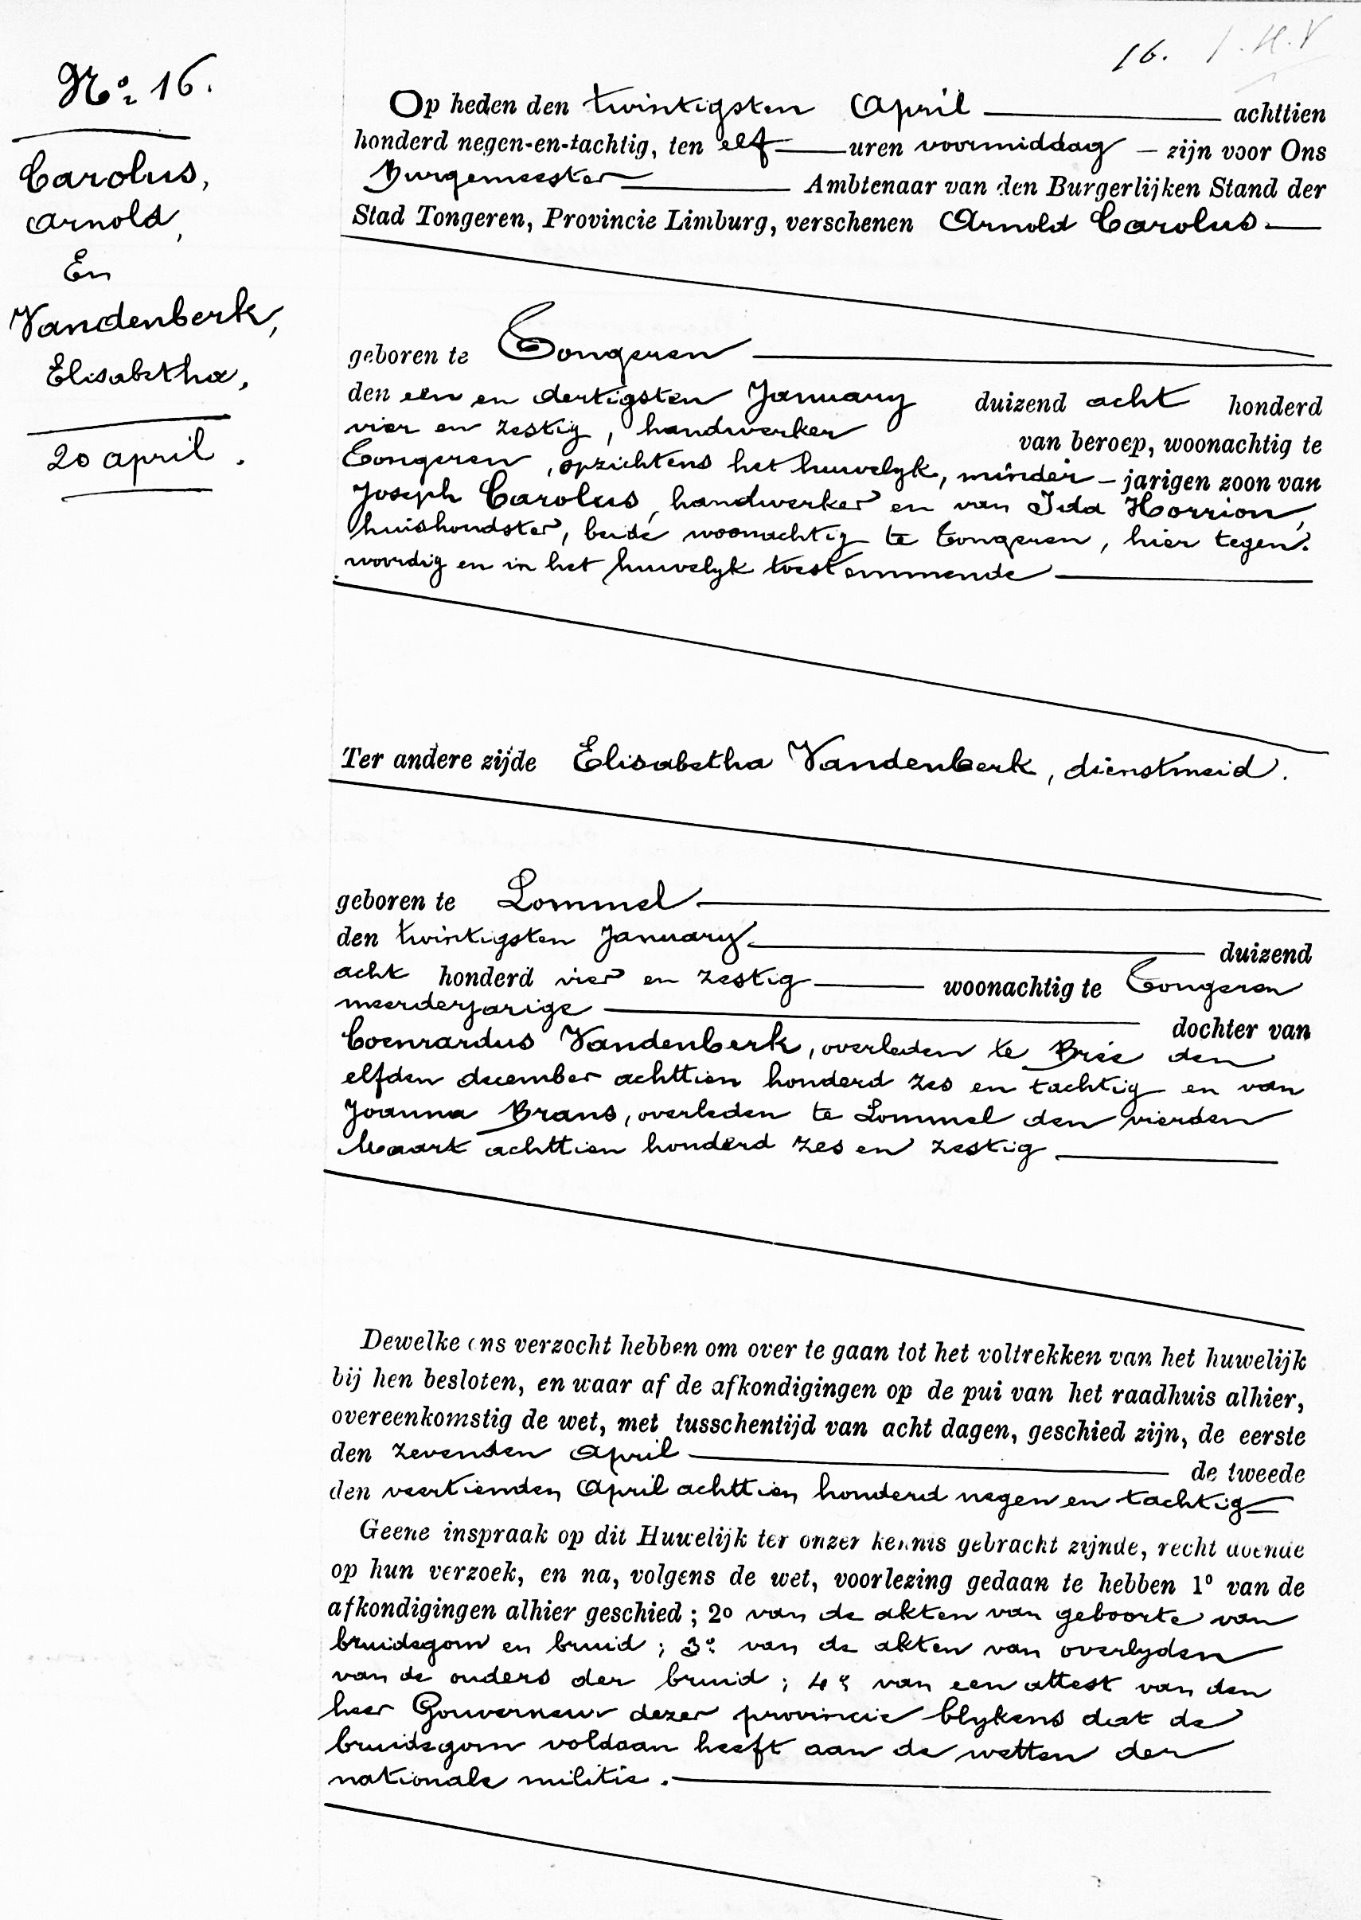 16. I.H.V
No. 16.
Carolus,
Arnold,
En
Vandenberk,
Elisabetha,
20 april.
Op heden den twintigsten April achttien
honderd negen-en-tachtig, ten elf uren voormiddag – zijn voor Ons
Burgemeester Ambtenaar van den Burgerlijken Stand der
Stad Tongeren, Provincie Limburg, verschenen Arnold Carolus
geboren te Tongeren
den één en dertigsten January duizend acht honderd
vier en zestig, handwerker van beroep, woonachtig te
Tongeren, opzichtens het huwelyk, minder – jarigen zoon van
Joseph Carolus, handwerker en van Ida Horrion,
huishoudster, beide woonachtig te Tongeren, hier tegen-
woordig en in het huwelyk toestemmende
Ter andere zijde Elisabetha Vandenberk, dienstmeid.
geboren te Lommel
den twintigsten January duizend
acht honderd vier en zestig woonachtig te Tongeren
meerderjarige dochter van
Coenrardus Vandenberk, overleden te Brée den
elfden december achttien honderd zes en tachtig en van
Joanna Brans, overleden te Lommel den vierden
Maart achttien honderd zes en zestig
Dewelke ons verzocht hebben om over te gaan tot het voltrekken van het huwelijk
bij hen besloten, en waar af de afkondigingen op de pui van het raadhuis alhier,
overeenkomstig de wet, met tusschentijd van acht dagen, geschied zijn, de eerste
den zevenden April de tweede
den veertienden April achttien honderd negen en tachtig
Geene inspraak op dit Huwelijk ter onzer kennis gebracht zijnde, recht doende
op hun verzoek, en na, volgens de wet, voorlezing gedaan te hebben 1° van de
afkondigingen alhier geschied; 2° van de akten van geboorte van
bruidegom en bruid; 3° van de akten van overlyden
van de ouders der bruid; 4° van een attest van den
heer Gouverneur dezer provincie blykens dat de
bruidegom voldaan heeft aan de wetten der
nationale militie.